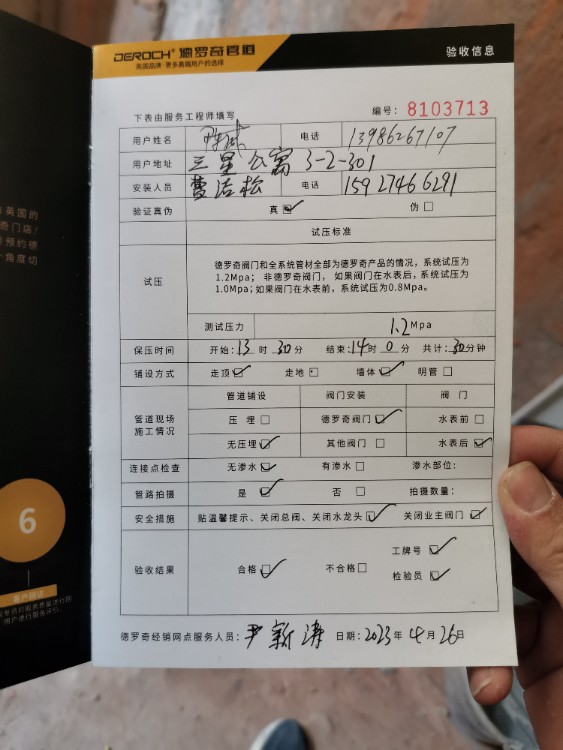 DEROCH® 德罗奇管道
英国品牌·更多高端用户的选择
验收信息
下表由服务工程师填写
编号: 8103713
用户姓名 电话 13986267107
用户地址 三星公寓 3-2-301
安装人员 洁松 电话 15927466291
验证真伪 真 伪
试压标准
试压
德罗奇阀门和全系统管材全部为德罗奇产品的情况,系统试压为
1.2Mpa; 非德罗奇阀门, 如果阀门在水表后,系统试压为
1.0Mpa;如果阀门在水表前,系统试压为0.8Mpa。
测试压力 1.2Mpa
保压时间 开始:13时30分 结束:14时0分 共计:30分钟
铺设方式 走顶 走地 墙体 明管
管道现场
施工情况
管道铺设 阀门安装 阀 门
压 埋 德罗奇阀门 水表前
无压埋 其他阀门 水表后
连接点检查 无渗水 有渗水 渗水部位:
管路拍摄 是 否 拍摄数量:
安全措施 贴温馨提示、关闭总阀、关闭水龙头 关闭业主阀门
验收结果 合格 不合格
工牌号
检验员
德罗奇经销网点服务人员: 尹新涛 日期: 2023年4月26日
英国的
奇门店!
预约德
角度切
6